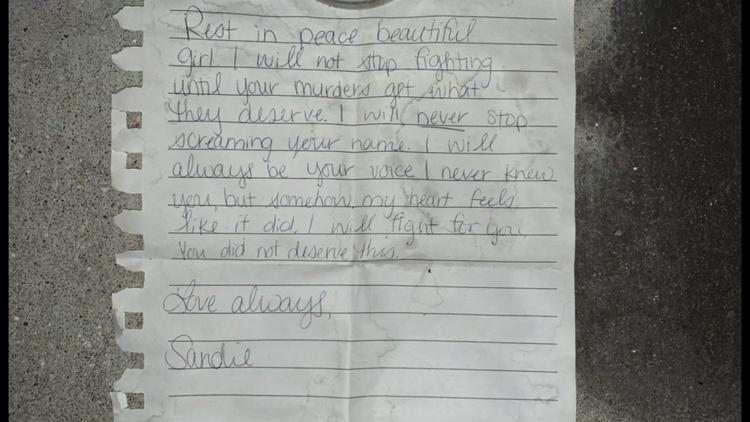 Rest in peace beautiful
girl I will not stop fighting
until your murders get what
they deserve. I will never stop
screaming your name. I will
always be your voice I never knew
you, but somehow my heart feels
like it did. I will fight for you
You did not deserve this.
Love always,
Sandie